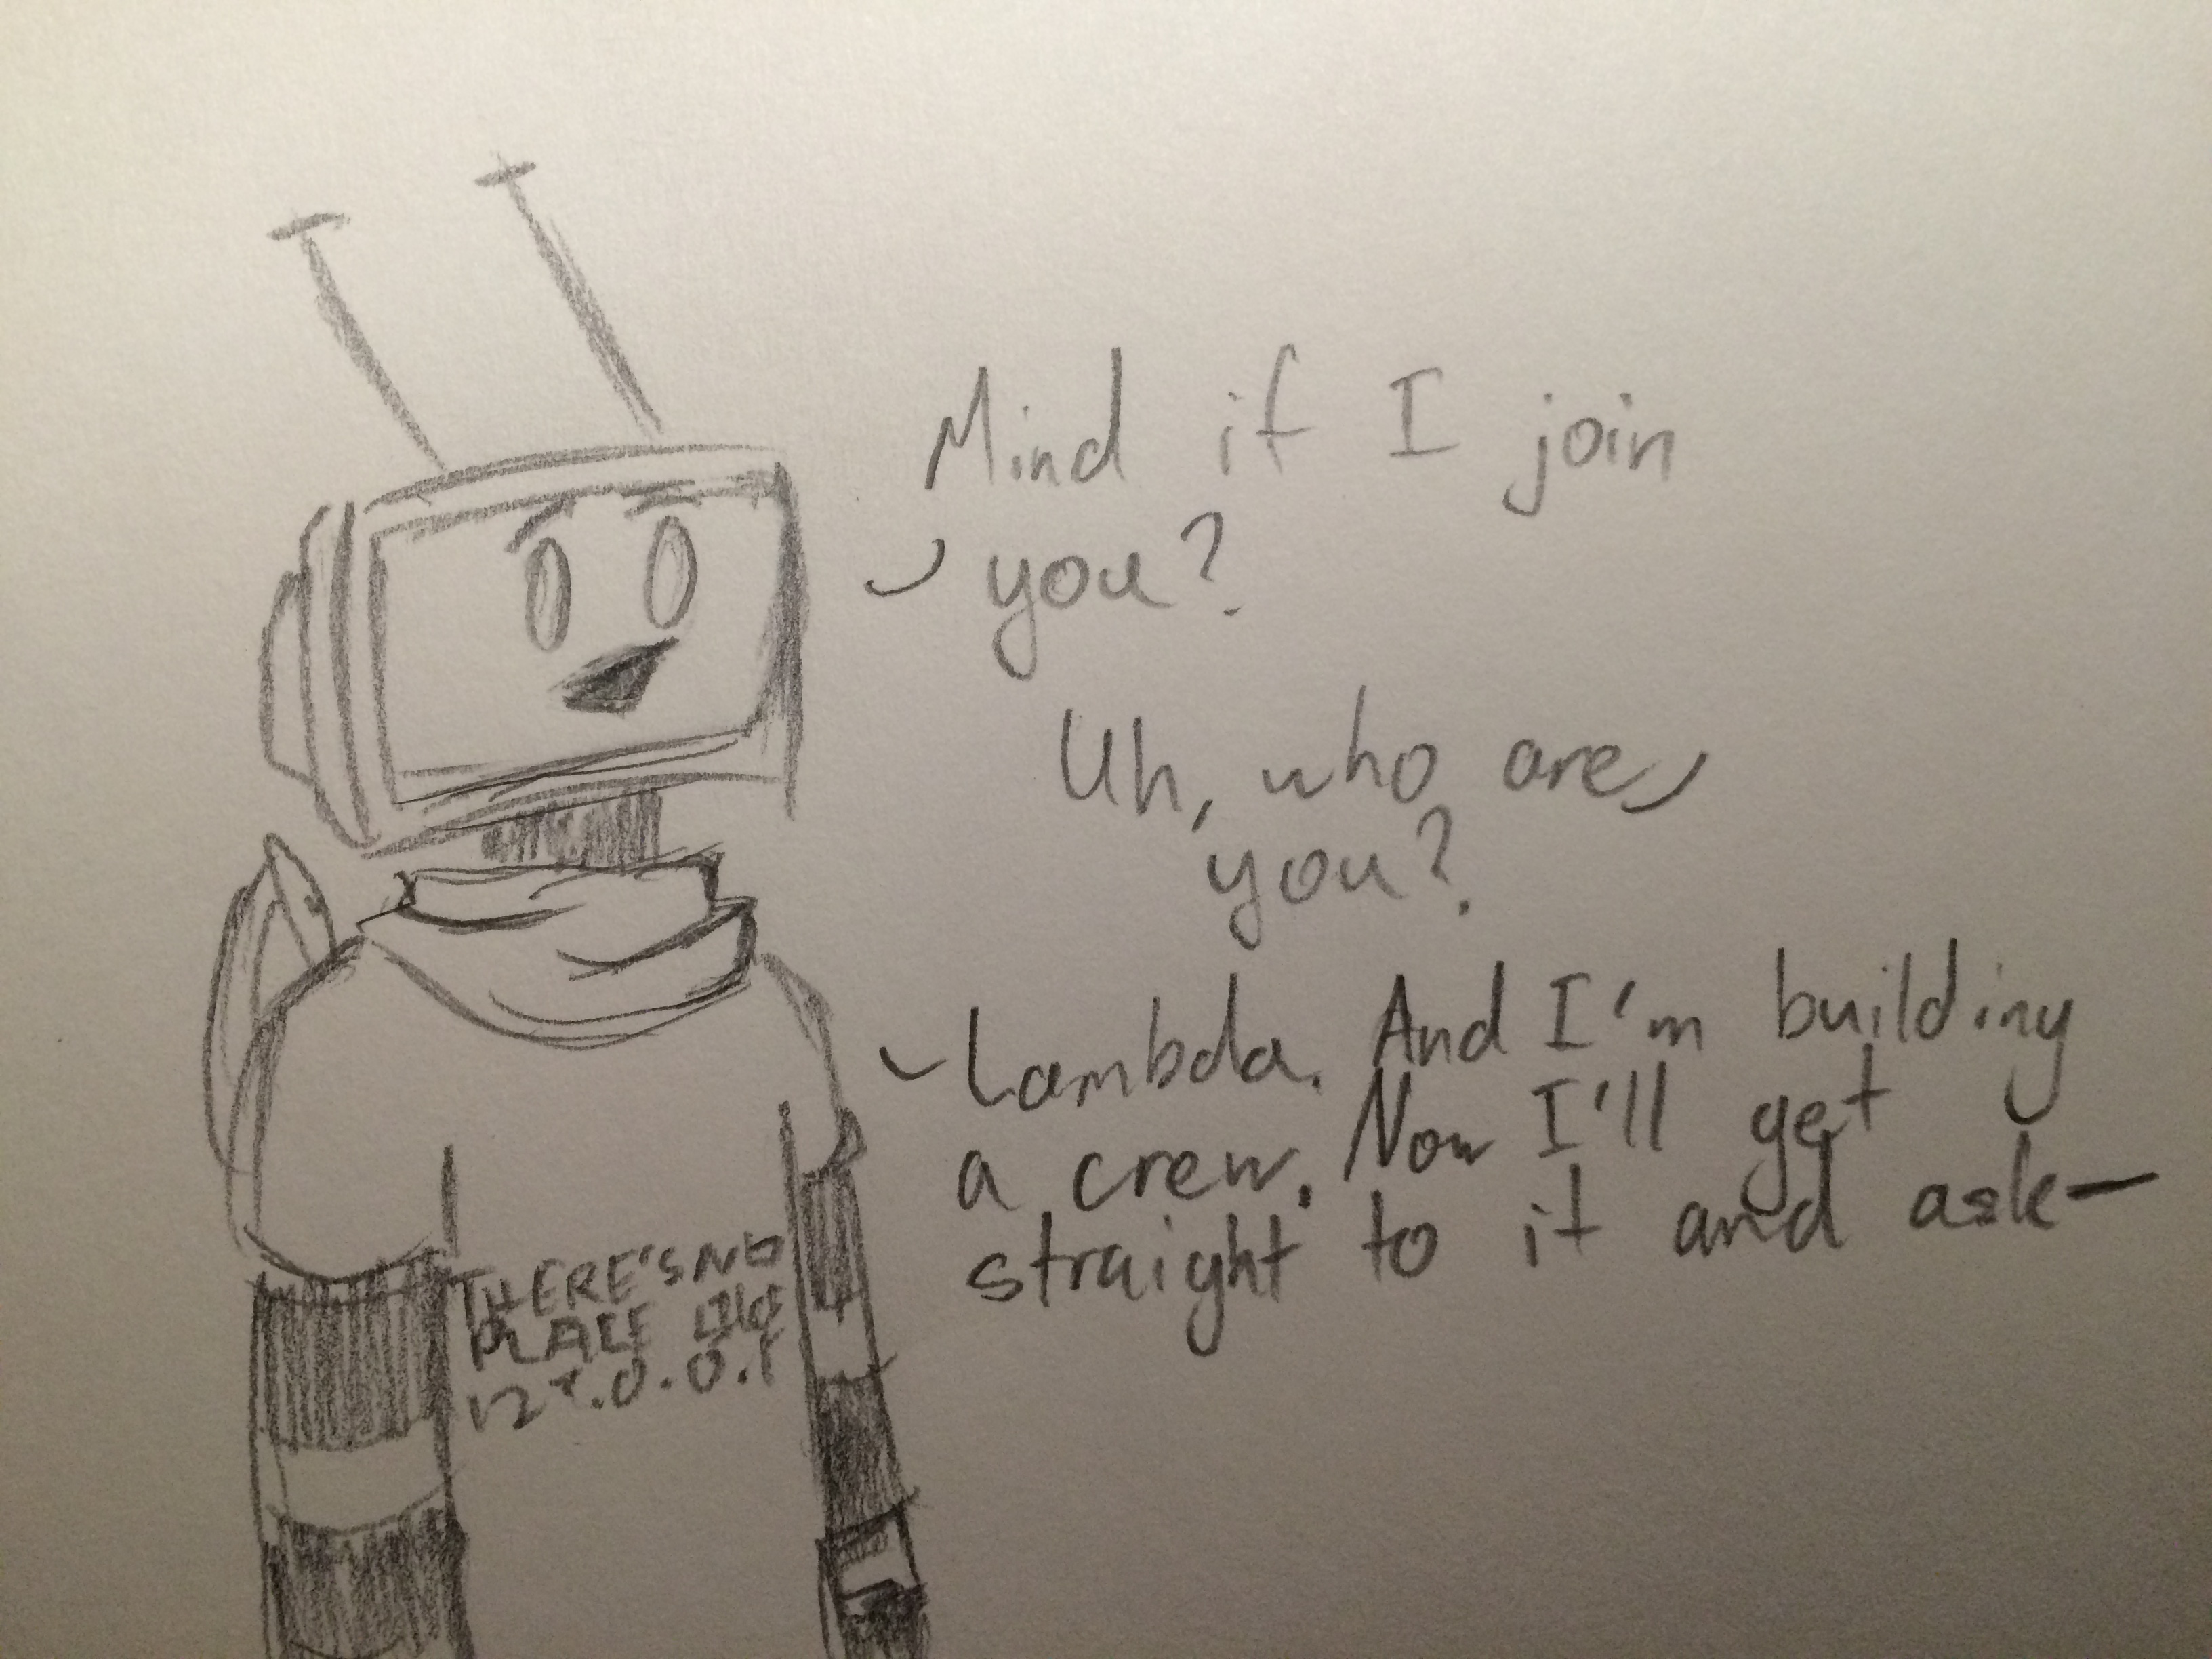 Mind if I join
you?
Uh, who are
you?
Lambda. And I'm building
a crew. Now I'll get
straight to it and ask—
THERE'S NO
PLACE LIKE
127.0.0.1